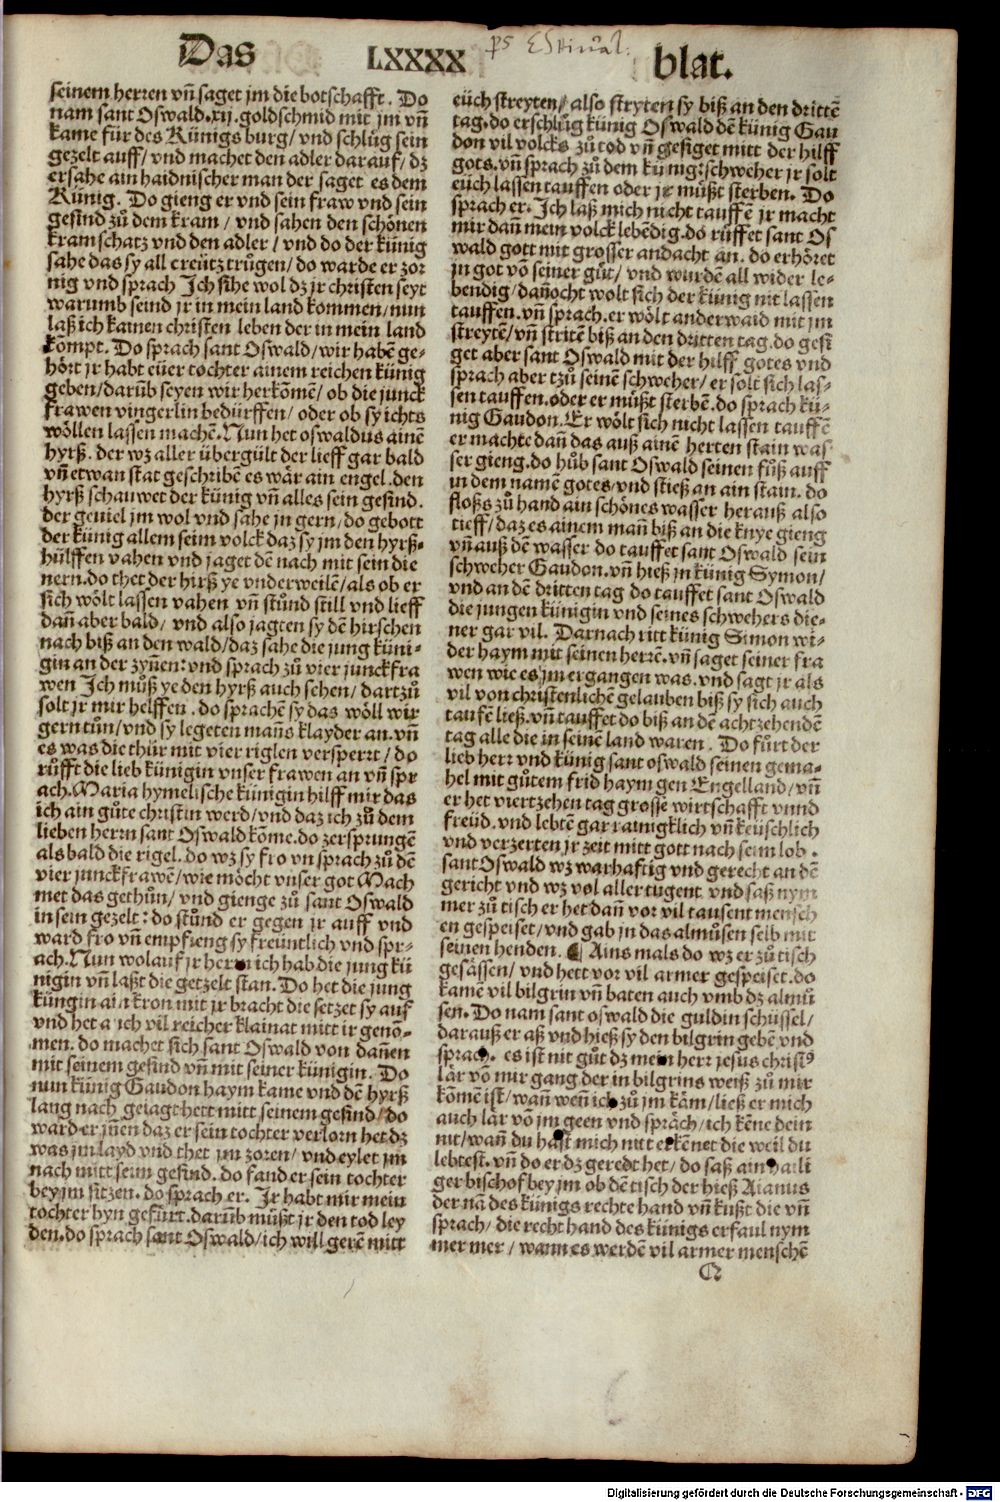 Das LXXXX blat.
seinem herren vn̄ saget jm die botschafft. Do
nam sant Oswald.xij.goldschmid mit jm vn̄
kame für des Künigs burg/vnd schlůg sein
gezelt auff/vnd machet den adler darauf/dz
ersahe ain haidnischer man der saget es dem
Künig. Do gieng er vnd sein fraw vnd sein
gesind zů dem kram/vnd sahen den schönen
kramschatz vnd den adler/vnd do der künig
sahe das sy all creütz trůgen/do warde er zor
nig vnd sprach Ich sihe wol dz jr christen seyt
warumb seind jr in mein land kommen/nun
laß ich kainen christen leben der in mein land
kompt. Do sprach sant Oswald/wir habē ge-
hört jr habt eüer tochter ainem reichen künig
geben/darūb seyen wir herkōmē/ob die junck
frawen vingerlin bedürffen/oder ob sy ichts
wöllen lassen machē.Nun het oswaldus ainē
hyrß. der wz aller übergült der lieff gar bald
vn̄ etwan stat geschribē es wär ain engel.den
hyrß schauwet der künig vn̄ alles sein gesind.
der geuiel jm wol vnd sahe jn gern/do gebott
der künig allem seim volck daz sy jm den hyrß-
hülffen vahen vnd jaget dē nach mit sein die
nern.do thet der hirß ye vnderweilē/als ob er
sich wölt lassen vahen vn̄ stůnd still vnd lieff
dan̄ aber bald/vnd also jagten sy dē hirschen
nach biß an den wald/daz sahe die jung küni-
gin an der zyn̄en:vnd sprach zů vier junckfra
wen Ich můß ye den hyrß auch sehen/dartzů
solt jr mir helffen.do sprachē sy das wöll wir
gern tůn/vnd sy legeten man̄s klayder an.vn̄
es was die thür mit vier riglen versperrt/do
růfft die lieb künigin vnser frawen an vn̄ spr
ach.Maria hymelische künigin hilff mir das
ich ain gůte christin werd/vnd daz ich zů dem
lieben herrn sant Oswald kōme.do zersprungē
als bald die rigel.do wz sy fro vn sprach zů dē
vier junckfrawē/wie möcht vnser got Mach
met das gethůn/vnd gienge zů sant Oswald
in sein gezelt:do stůnd er gegen jr auff vnd
ward fro vn̄ empfieng sy freüntlich vnd spr-
ach.Nun wolauf jr herrn ich hab die jung kü
nigin vn̄ laßt die getzelt stan.Do het die jung
küngin ain kron mit jr bracht die setzet sy auf
vnd het auch vil reicher klainat mitt ir genō-
men.do machet sich sant Oswald von dan̄en
mit seinem gesind vn̄ mit seiner künigin. Do
nun künig Gaudon haym kame vnd dē hyrß
lang nach geiagt hett mitt seinem gesind/do
ward er jn̄en daz er sein tochter verlorn het dz
was jm layd vnd thet jm zoren/vnd eylet jm
nach mitt seim gesind. do fand er sein tochter
bey jm sitzen.do sprach er. Ir habt mir mein
tochter hyn gefürt.darūb müßt jr den tod ley
den.do sprach sant Oswald/ich will gerē mitt
eüch streyten/also stryten sy biß an den drittē
tag.do erschlůg künig Oswald dē künig Gau
don vil volcks zů tod vn̄ gesiget mitt der hilff
gots.vn̄ sprach zů dem künig:schweher jr solt
eüch lassen tauffen oder jr müßt sterben. Do
sprach er.Ich laß mich nicht tauffē jr macht
mir dan̄ mein volck lebēdig.do růffet sant Os
wald gott mit grosser andacht an. do erhöret
jn got vō seiner güt/vnd wurdē all wider le-
bendig/dan̄ocht wolt sich der künig nit lassen
tauffen.vn̄ sprach.er wölt anderwaid mit jm
streytē/vn̄ stritē biß an den dritten tag.do gesi
get aber sant Oswald mit der hilff gotes vnd
sprach aber tzů seinē schweher/er solt sich las-
sen tauffen.oder er müßt sterbē.do sprach kü-
nig Gaudon.Er wölt sich nicht lassen tauffē
er machte dan̄ das auß ainē herten stain was
ser gieng.do hůb sant Oswald seinen fůß auff
in dem namē gotes/vnd stieß an ain stain. do
floßs zů hand ain schönes wasser herauß also
tieff/daz es ainem man̄ biß an die knye gieng
vn̄ auß dē wasser do tauffet sant Oswald sein
schweher Gaudon.vn̄ hieß jn künig Symon/
vnd an dē dritten tag do tauffet sant Oswald
die jungen künigin vnd seines schwehers die-
ner gar vil. Darnach ritt künig Simon wi-
der haym mit seinen herrē.vn̄ saget seiner fra
wen wie es jm ergangen was.vnd sagt jr als
vil von christenlichē gelauben biß sy sich auch
taufē ließ.vn̄ tauffet do biß an dē achtzehendē
tag alle die in seinē land waren. Do fůrt der
lieb herr vnd künig sant oswald seinen gema-
hel mit gůtem frid haym gen Engelland/vn̄
er het viertzehen tag grosse wirtschafft vnnd
freüd.vnd lebtē gar rainigklich vn̄ keüschlich
vnd verzerten jr zeit mitt gott nach seim lob.
sant Oswald wz warhaftig vnd gerecht an dē
gericht vnd wz vol aller tugent vnd saß nym
mer zů tisch er het dan̄ vor vil tausent mensch
en gespeiset/vnd gab jn das almůsen selb mit
seinen henden. ¶ Ains mals do wz er zů tisch
gesässen/vnd hett vor vil armer gespeiset.do
kamē vil bilgrin vn̄ baten auch vmb dz almů
sen.Do nam sant oswald die guldin schüssel/
darauß er aß vnd hieß sy den bilgrin gebē vnd
sprach. es ist nit gůt dz mein herr jesus christ⁹
lär vō mir gang der in bilgrins weiß zů mir
kōmē ist/wan̄ wen̄ ich zů jm käm/ließ er mich
auch lär vō jm geen vnd spräch/ich kēne dein
nit/wan̄ du hast mich nitt erkēnet die weil du
lebtest.vn̄ do er dz geredt het/do saß ain haili
ger bischof bey jm ob dē tisch der hieß Aianus
der nā des künigs rechte hand vn̄ kußt die vn̄
sprach/die recht hand des künigs erfaul nym
mer mer/wann es werdē vil armer menschē
Digitalisierung gefördert durch die Deutsche Forschungsgemeinschaft - DFG